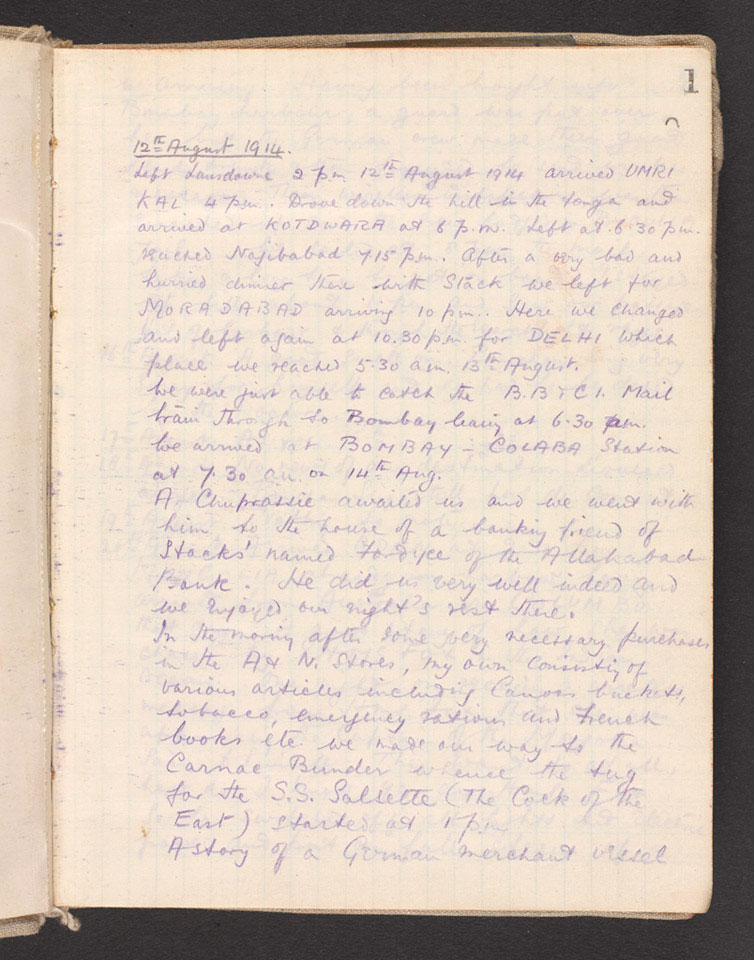 1
12th August 1914.
Left Lansdowne 2 pm 12th August 1914 arrived UMRI
KAL 4 pm. Drove down the hill in the tonga and
arrived at KOTDWARA at 6 p.m. Left at 6.30 pm.
reached Najibabad 7.15 pm. After a very bad and
hurried dinner there with Stack we left for
MORADABAD arriving 10 pm.. Here we changed
and left again at 10.30 pm. for DELHI which
place we reached 5.30 am. 13th August.
We were just able to catch the B.B & C I. Mail
train through to Bombay leaving at 6.30 am.
We arrived at BOMBAY - COLABA Station
at 7.30 a.m. on 14th Aug.
A Chuprassie awaited us and we went with
him to the house of a banking friend of
Stacks' named Fordyce of the Allahabad
Bank. He did us very well indeed and
we enjoyed our night's rest there.
In the morning after some very necessary purchases
in the A & N. Stores, my own consisting of
various articles including Canvas buckets,
tobacco, emergency rations and French
books etc. we made our way to the
Carnac Bunder whence the tug
for the S.S. Salsette (The Cock of the
East) started at 1 pm
A story of a German merchant vessel